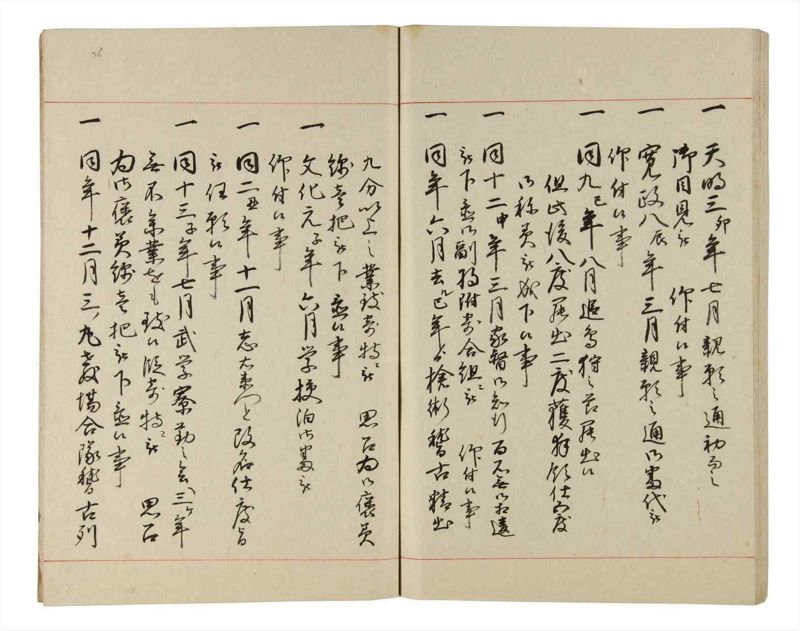 一 天明三卯年七月親願之通初而之
御目見被 仰付候事
一 寛政八辰年三月親願之通御番代被
仰付候事
一 同九巳年八月追鳥狩之節罷出候
但此後八度罷出二度獲物仕
御称美被成下候事
一 同十二申年三月家督御知行百石無御相違
被下置御副将附寄合組被 仰付候事
一 同年六月去巳年より槍術稽古精出
九分以上之業致奇特被 思召為御褒美
被下置候事
一 文化元子年六月学校泊御番被
仰付候事
一 同二丑年十一月志右衛門と改名仕度旨
被任願候事
一 同十三子年七月武学寮勤之会三ヶ年
無不参業をも致候段奇特被 思召
為御褒美 被下置候事
一 同年十二月三ノ丸教場合隊稽古列